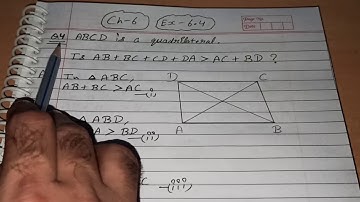 Ch-6 Ex-6.4
Q4. ABCD is a quadrilateral.
Is AB+BC+CD+DA > AC+BD ?
In △ ABC,
AB+BC > AC —(i)
D C
△ ABD,
> BD —(ii)
A B
C —(iii)